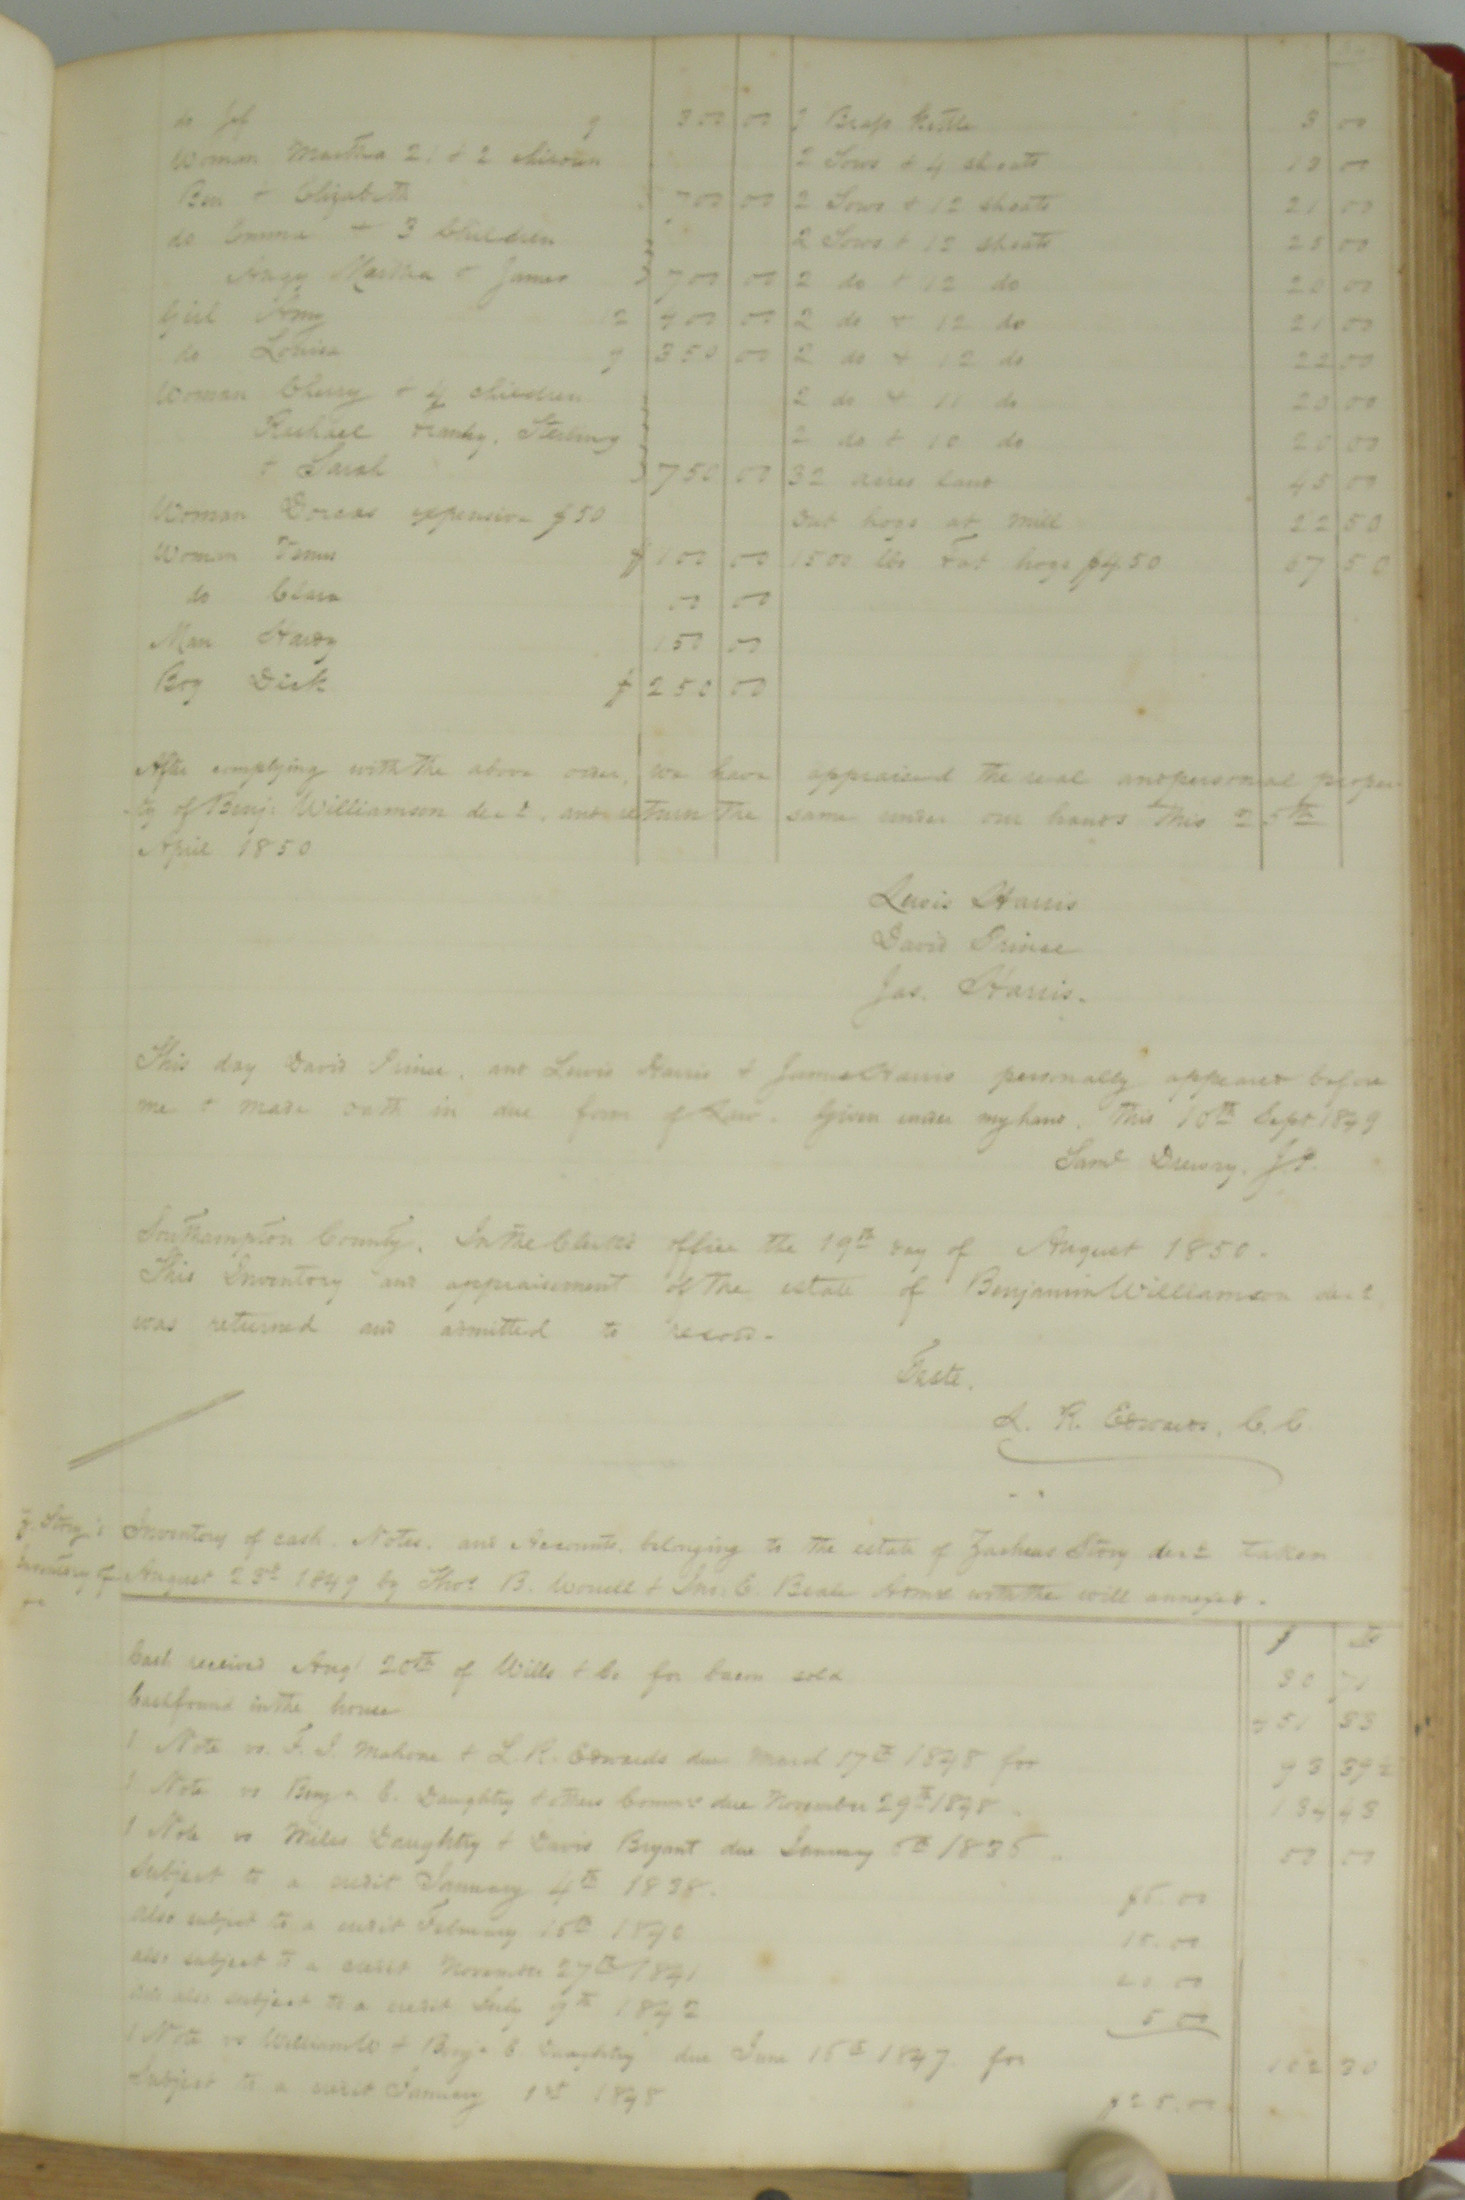 do Jef 9 300 00
Woman Martha 21 + 2 children
Ben + Elizabeth 700 00
do Emma + 3 Children
Martha + James 700 00
Girl Amy 12 400 00
do Louisa 9 350 00
Woman Cherry + 4 children
Rachael Franky, Sterling
+ Sarah 750 00
Woman Dorcas expensive $50
Woman Venus $100 00
do Clara 00 00
Man Hardy 150 00
Boy Dick $250 00
1 Brass Kettle 3 00
2 Sows + 4 shoats 00
2 Sows + 12 shoats 21 00
2 Sows + 12 shoats 25 00
2 do + 12 do 20 00
2 do + 12 do 21 00
2 do + 12 do 22 00
2 do + 11 do 20 00
2 do + 10 do 20 00
32 acres land 45 00
Out hogs at mill 22 50
1500 lbs Fat hogs $4.50 67 50
After complying with the above order, we have appraised the real and personal proper-
ty of Benj. Williamson decd. and return the same under our hands this 25th
April 1850
Lewis Harris
David Prince
Jas. Harris.
This day David Prince, and Lewis Harris + James Harris personally appeared before
me + made oath in due form of Law. Given under my hand, this 10th Sept 1849
Saml Drewry. J.P.
Southampton County. In the Clerk's office the 19th day of August 1850.
This Inventory and appraisement of the estate of Benjamin Williamson decd
was returned and admitted to record.
Teste,
L. R. Edwards, C.C.
Z. Story's
Inventory of
Inventory of cash, Notes, and Accounts, belonging to the estate of Zacheus Story decd taken
August 23d 1849 by Thos. B. Worrell + Jno. C. Beale Admr with the will annexed.
Cash received Augt 20th of Wills + Co for bacon sold 30 71
Cash found in the house 51 33
1 Note vs. F. J. Mahone + L. R. Edwards due March 17th 1848 for 93 39
1 Note vs Benj. C. Daughtry + others Comrs due November 29th 1848 134 43
1 Note vs Miles Daughtry + Davis Bryant due January 1835 50 00
Subject to a credit January 4th 1838. $5.00
also subject to a credit February 15th 1840 10.00
also subject to a credit November 27th 1841 00
and also subject to a credit July 9th 1842 5.00
1 Note vs William W + Benj. C. Daughtry due June 15th 1847 for 102 30
Subject to a credit January 1st 1848 $25.00